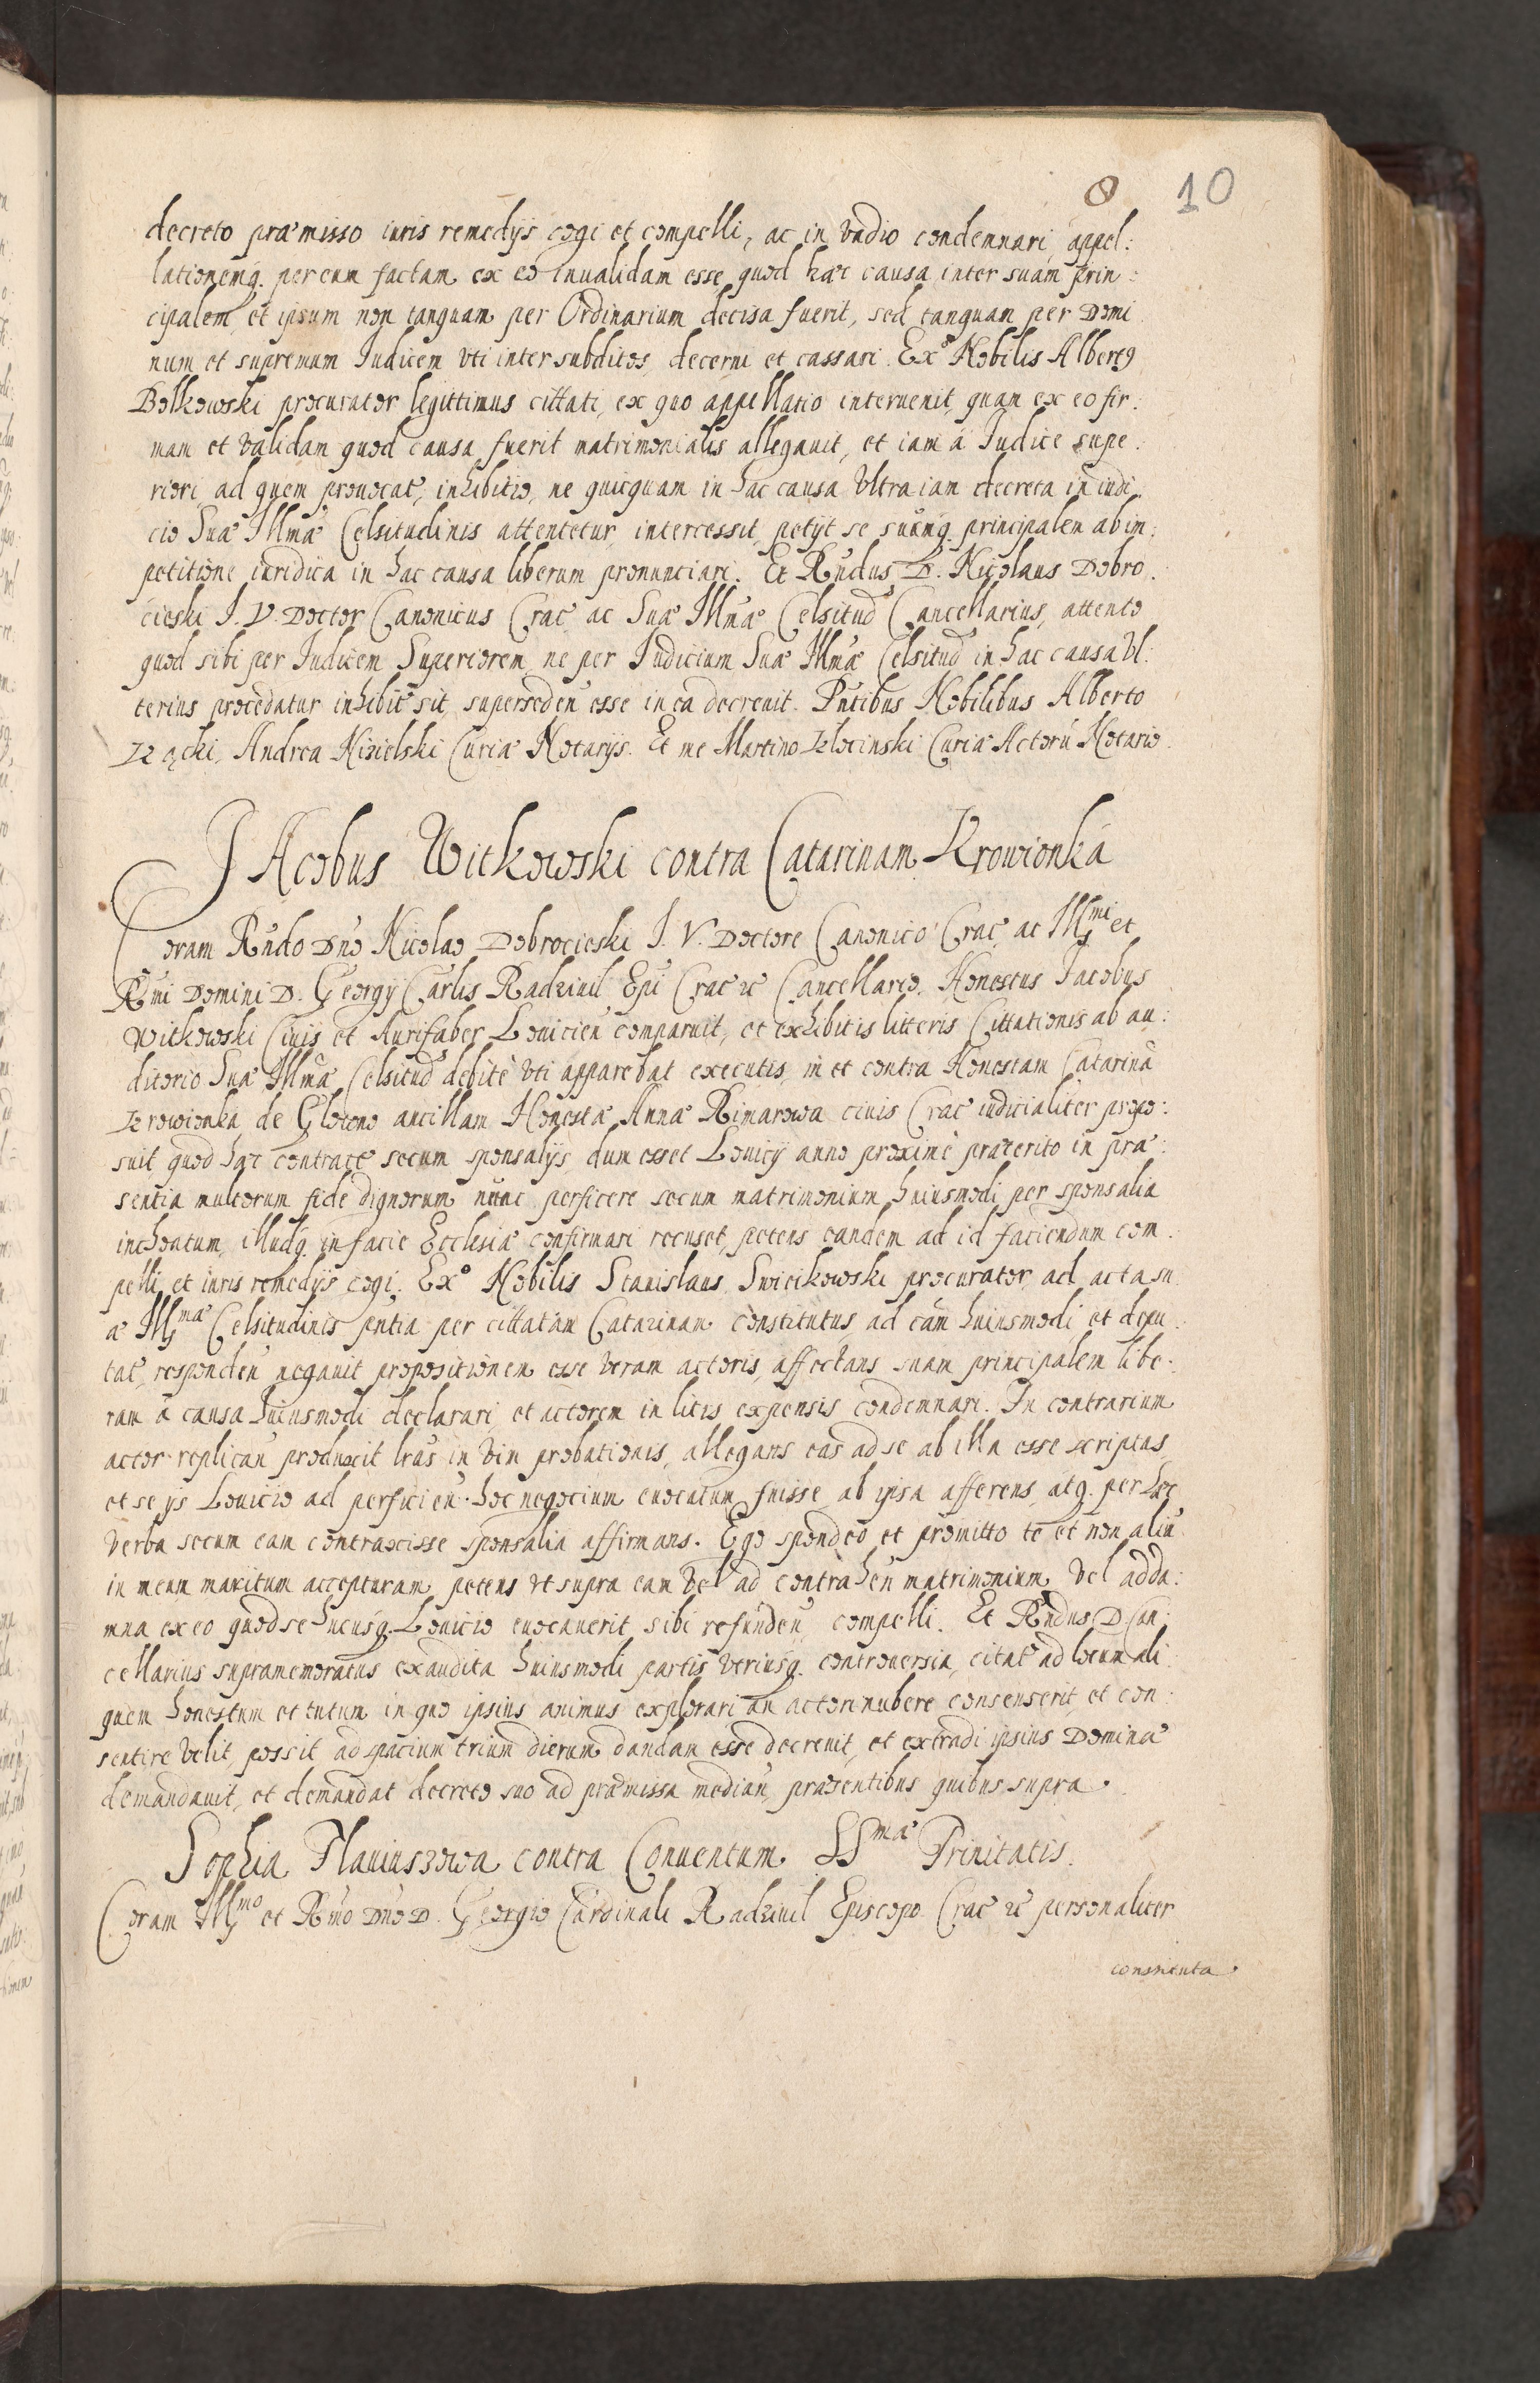 8 10
decreto præmisso iuris remedijs cogi et compelli, ac in vadio condemnari, appel:
lationemq. per eum factam ex eo inualidam esse, quod hæc causa inter suam prin:
cipalem, et ipsum non tanquam per Ordinarium decisa fuerit, sed tanquam per Domi
num et supremum Iudicem vti inter subditos, decerni et cassari. Exo Nobilis Albert9
Bolkowski procurator legittimus cittati, ex quo appellatio interuenit, quam ex eo fir:
mam et validam quod causa fuerit matrimonialis allegauit, et iam á Iudice supe:
riori, ad quem prouocat, inhibitio, ne quicquam in hac causa vltra iam decreta in iudi
cio Suæ Illmæ Celsitudinis attentetur, intercessit, petyt se suámq. principalem ab im:
petitione iuridica in hac causa liberum pronunciari. Et Rndus D. Nicolaus Dobro:
cieski I. V. Doctor Canonicus Crac ac Suæ Illmæ Celsitud Cancellarius, attento
quod sibi per Iudicem Superiorem, ne per Iudicium Suæ Illmæ Celsitud in hac causa vl:
terius procedatur inhibit sit, superseden esse in ea decreuit. Pntibus Nobilibus Alberto
Andrea Kisielski Curiæ Notarijs. Et me Martino Izlocinski Curiæ Actorú Notario.
IAcobus Witkowski contra Catarinam Krowionká
Coram Rndo Dno Nicolao Dobrocieski I. V. Doctore Canonico Crac, ac Illmi et
Rmi Domini D. Georgij Carlis Radziuil Epi Crac etc Cancellario. Honestus Iacobus
Witkowski Ciuis et Aurifaber Louicien comparuit, et exhibitis litteris Cittationis ab au:
ditorio Suæ Illmæ Celsitud debitè vti apparebat executis, in et contra Honestam Catarinã
Krowionka de ancillam Honestæ Annæ Rimarowa ciuis Crac iudicialiter propo:
suit, quod hæc contract secum sponsalijs, dum esset Louicij anno proximè præterito in præ:
sentia multorum fide dignorum nunc perficere secum matrimonium huiusmodi per sponsalia
inchoatum, illudq. in facie Ecclesiæ confirmari recuset, petens eandem ad id faciendum com:
pelli, et iuris remedijs cogi. Exo Nobilis Stanislaus Swicikowski procurator ad acta su
æ Illmæ Celsitudinis pntia per cittatam Catarinam constitutus, ad cãm huiusmodi, et depu:
tat, responden negauit propositionem esse veram actoris, affectans suam principalem libe:
ram á causa huiusmodi declarari, et actorem in litis expensis condemnari. In contrarium
actor replican produxit lras in vim probationis, allegans eas ad se ab illa esse scriptas,
et se ijs Louicio ad perficien hoc negocium euocatum fuisse ab ipsa afferens, atq. per hæc
verba secum eam contraxisse sponsalia affirmans. Ego spondeo et promitto te et non aliũ
in meum maritum accepturam, petens vt supra eam vel ad contrahen matrimonium, vel ad da:
mna ex eo quod se hucusq. Louicio euocauerit, sibi refunden, compelli. Et Rndus D. Can:
cellarius supramemoratus exaudita huiusmodi partis vtriusq. controuersia, citat ad locum ali:
quem honestum et tutum in quo ipsius animus explorari an actori nubere consenserit, et con:
sentire velit, possit ad spacium trium dierum dandam esse decreuit, et extradi ipsius Dominæ
demandauit, et demandat decreto suo ad præmissa median, præsentibus quibus supra.
Sophia Plauiuszowa contra Conuentum SSmæ Trinitatis.
Coram Illmo et Rmo Dno D. Georgio Cardinali Radziuil Episcopo Crac etc personaliter
constituta.